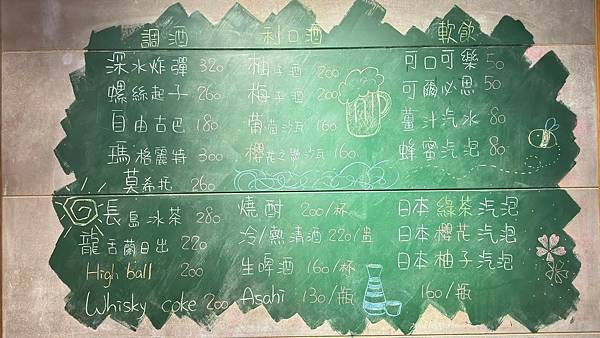 調酒
深水炸彈 320
螺絲起子 260
自由古巴 180
瑪格麗特 300
莫希托 260
長島冰茶 280
龍舌蘭日出 220
High ball 200
Whisky coke 200
利口酒
柚子酒 200
梅子酒 200
葡萄沙瓦 160
櫻花之戀沙瓦 160
燒酎 200/杯
冷/熱清酒 220/盅
生啤酒 160/杯
Asahi 130/瓶
軟飲
可口可樂 50
可爾必思 50
薑汁汽水 80
蜂蜜汽泡 80
日本綠茶汽泡
日本櫻花汽泡
日本柚子汽泡
160/瓶